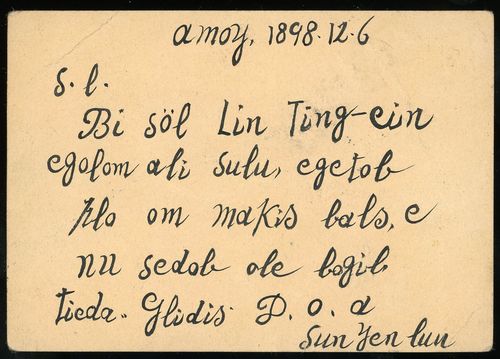 amoy, 1898.12.6
s. l.
Bi söl Lin Ting-ein
egolom ali sulu, egetob
klo om makis bals, e
nu sedob ole bogib
tieda. Glidis. D. o. a
Sun Yen lun